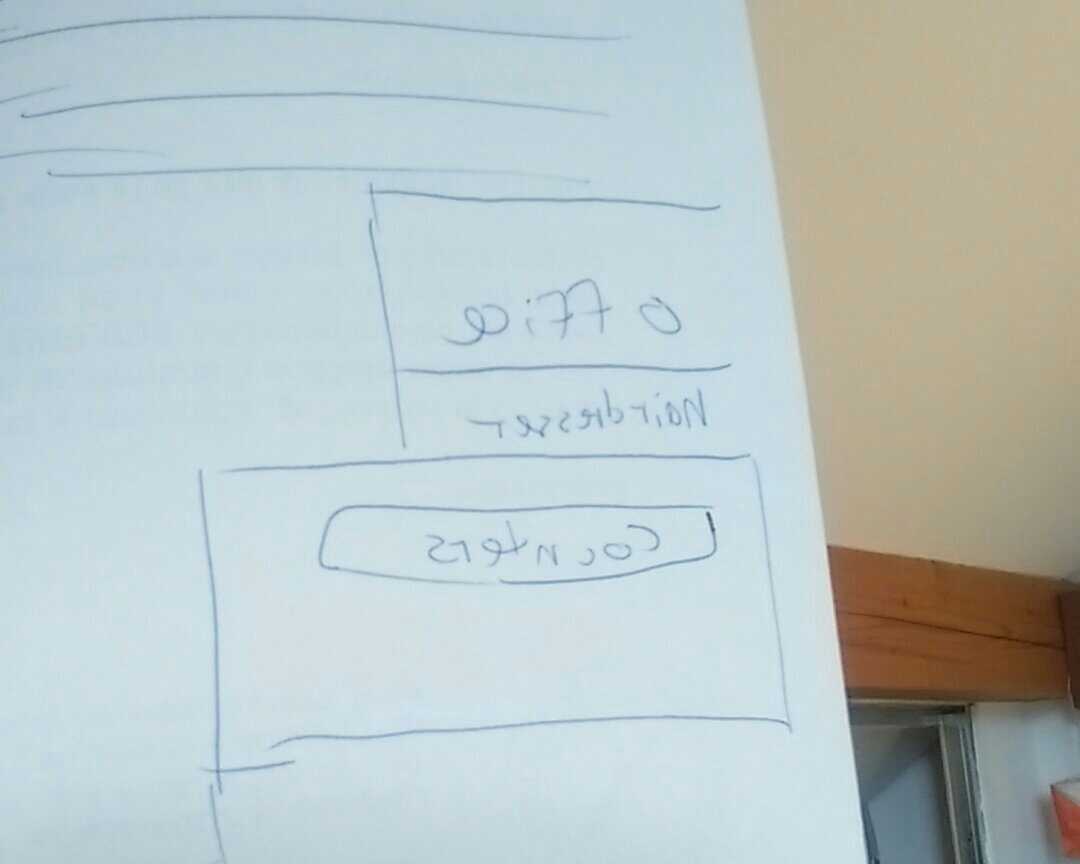 office
Hairdresser
Counters